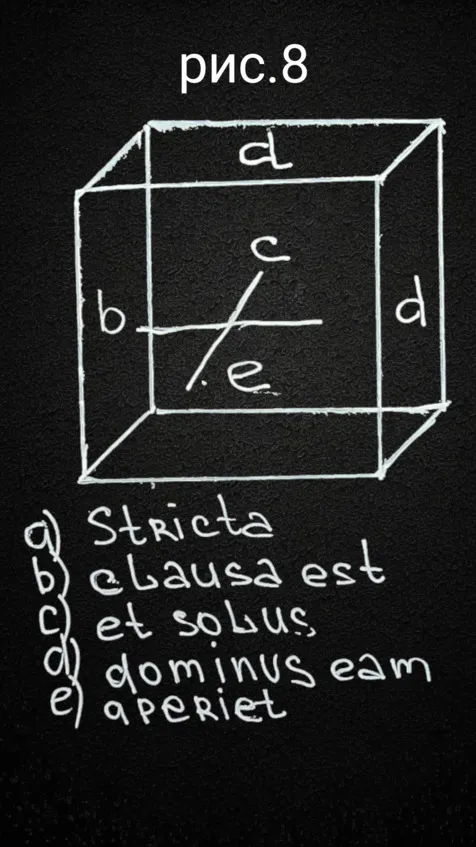 рис.8
d
c
b
d
e
a) Stricta
b) clausa est
c) et solus
d) dominus eam
e) aperiet